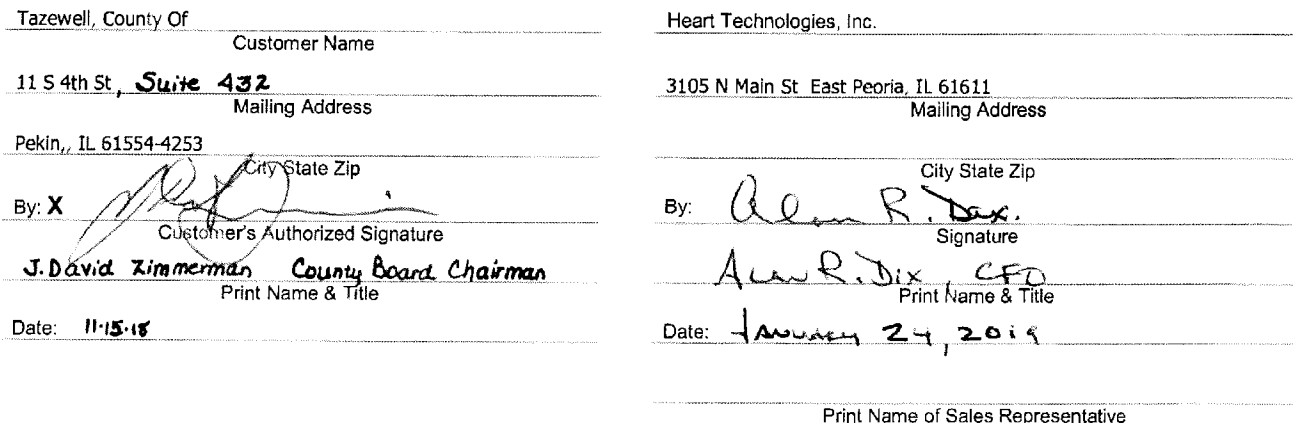 Tazewell, County Of
Customer Name
11 S 4th St, Suite 432
Mailing Address
Pekin,, IL 61554-4253
City State Zip
By: X
Customer's Authorized Signature
J. David Zimmerman County Board Chairman
Print Name & Title
Date: 11-15-18
Heart Technologies, Inc.
3105 N Main St East Peoria, IL 61611
Mailing Address
City State Zip
By: Alan R. Dix.
Signature
Alan R. Dix, CFO
Print Name & Title
Date: January 24, 2019
Print Name of Sales Representative